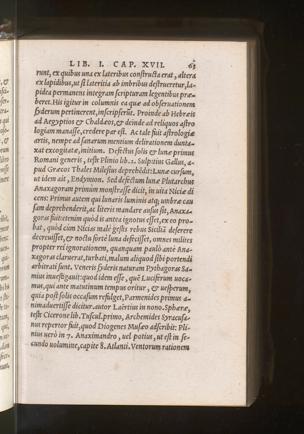 LIB. I. CAP. XVII. 63
runt, ex quibus una ex lateribus constructa erat, altera
ex lapidibus, ut si lateritia ab imbribus destrueretur, la-
pidea permanens integram scripturam legentibus præ-
beret. His igitur in columnis ea quæ ad obseruationem
siderum pertinerent, inscripserunt. Proinde ab Hebræis
ad Aegyptios & Chaldæos, & deinde ad reliquos astro
logiam manasse, credere par est. Ac tale fuit astrologiæ
artis, nempe ad sanarum mentium delirationem dunta-
xat excogitatæ, initium. Defectus solis & lunæ primus
Romani generis, teste Plinio lib. 2. Sulpitius Gallus, a-
pud Græcos Thales Milesius deprehēdit: Lunæ cursum,
ut idem ait, Endymion. Sed defectum lunæ Plutarchus
Anaxagoram primùm monstrasse dicit, in uita Niciæ di
cens: Primus autem qui lunaris luminis atq; umbræ cau
sam deprehenderit, ac literis mandare ausus sit, Anaxa-
goras fuit: etenim quòd is antea ignotus esset, ex eo pro-
bat, quòd cùm Nicias malè gestis rebus Siciliā deserere
decreuisset, & noctu fortè luna defecisset, omnes milites
propter rei ignorationem, quanquam paulò antè Ana-
xagoras claruerat, turbati, malum aliquod sibi portendi
arbitrati sunt. Veneris sideris naturam Pythagoras Sa-
mius inuestigauit: quod idem esse, què Luciferum uoca-
mus, qui ante matutinum tempus oritur, & uesperum,
quia post solis occasum refulget, Parmenides primus a-
nimaduertisse dicitur. autor Laërtius in nono. Sphæræ,
teste Cicerone lib. Tuscul. primo, Archimedes Syracusa-
nus repertor fuit, quod Diogenes Musæo adscribit: Pli-
nius uerò in 7. Anaximandro, uel potius, ut est in se-
cundo uolumine, capite 8. Atlanti. Ventorum rationem